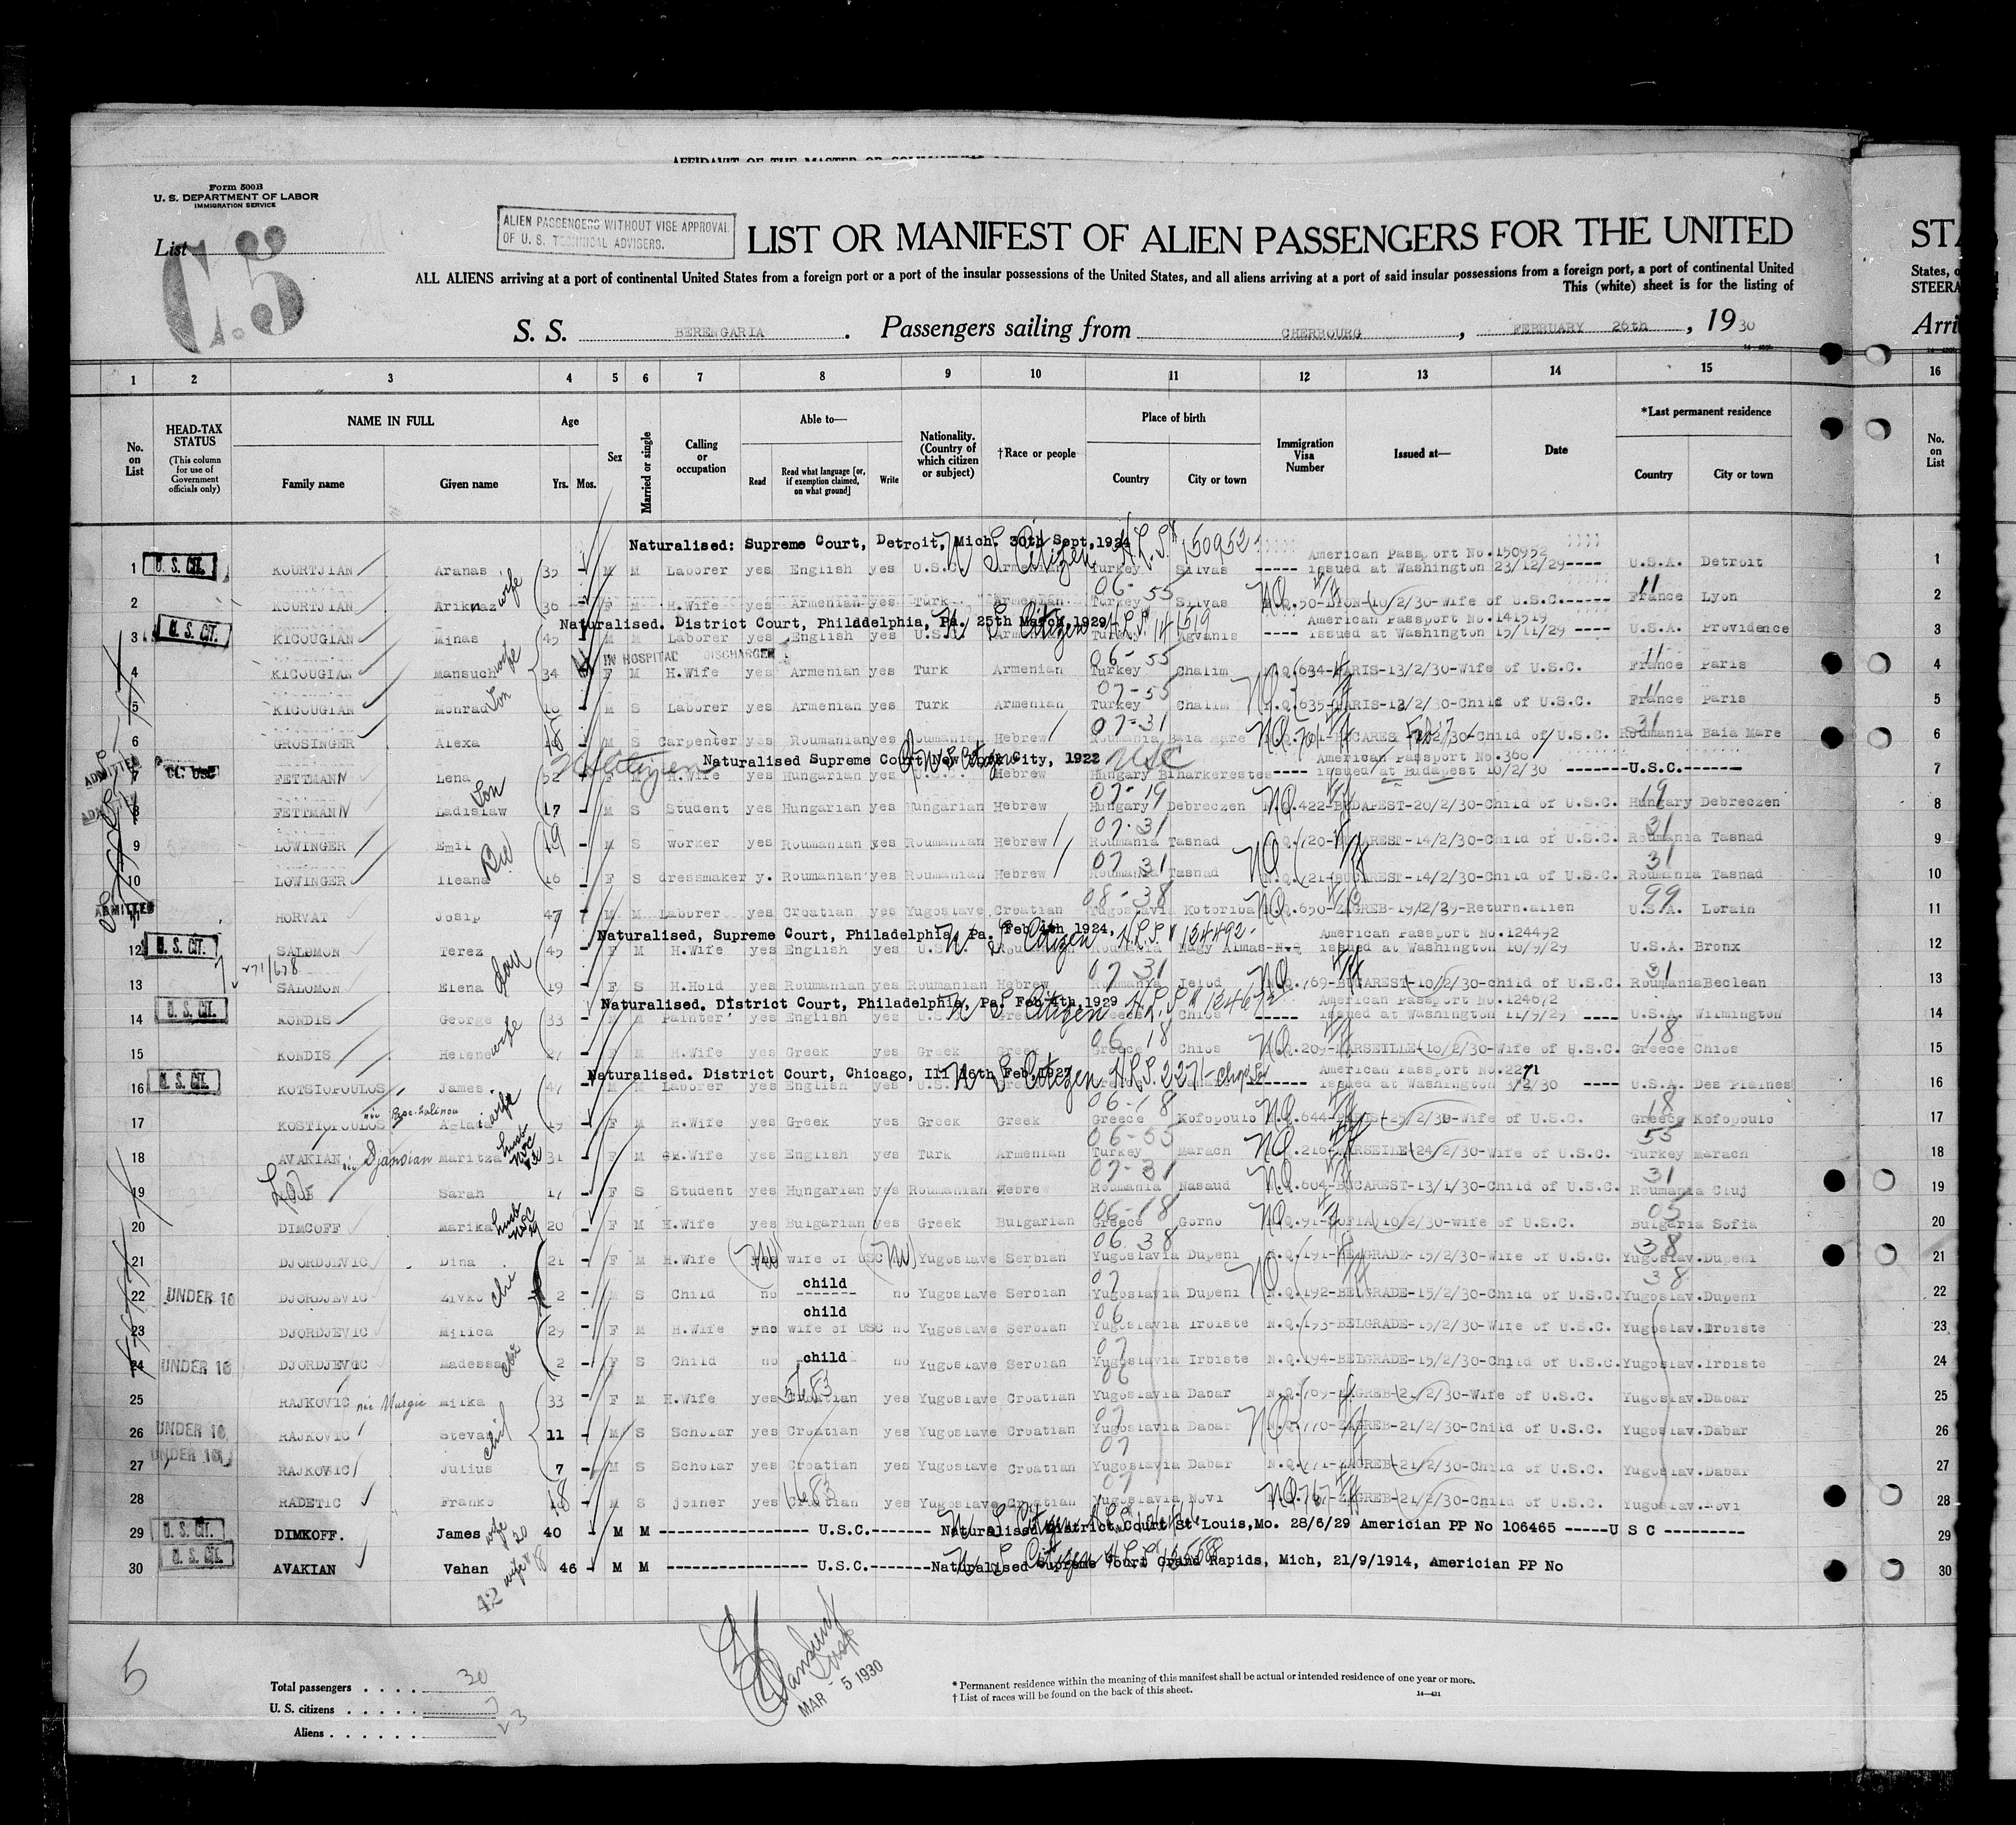 AFFIDAVIT OF THE MASTER OR
Form 500B
U. S. DEPARTMENT OF LABOR
IMMIGRATION SERVICE
List
C.5
ALIEN PASSENGERS WITHOUT VISE APPROVAL
OF U. S. TECHNICAL ADVISERS.
LIST OR MANIFEST OF ALIEN PASSENGERS FOR THE UNITED
ALL ALIENS arriving at a port of continental United States from a foreign port or a port of the insular possessions of the United States, and all aliens arriving at a port of said insular possessions from a foreign port, a port of continental United
This (white) sheet is for the listing of
States,
STEERA
S. S. BERENGARIA. Passengers sailing from CHERBOURG, FEBRUARY 26th, 1930
Arri
1 2 3 4 5 6 7 8 9 10 11 12 13 14 15 16
No. on List
HEAD-TAX STATUS (This column for use of Government officials only)
NAME IN FULL Family name Given name
Age Yrs. Mos.
Sex
Married or single
Calling or occupation
Able to— Read Read what language [or, if exemption claimed, on what ground] Write
Nationality. (Country of which citizen or subject)
†Race or people
Place of birth Country City or town
Immigration Visa Number
Issued at—
Date
*Last permanent residence Country City or town
No. on List
Naturalised: Supreme Court, Detroit, Mich. 30th Sept, 1924 U S Citizen 150952 American Passport No.150952
1 U. S. CIT. KOURTJIAN Aranas 35 M M Laborer yes English yes U.S.C. Turkey Silvas ----- issued at Washington 23/12/29---- U.S.A. Detroit 1
06-55 11
2 KOURTJIAN wife 36 F M H.Wife yes Armenian yes Turk Armenian Turkey Silvas N.Q.50-LYON-10/2/30-Wife of U.S.C.----- France Lyon 2
Naturalised. District Court, Philadelphia, Pa. 25th March, 1929 Citizen 141519 American Passport No.141519
3 U. S. CIT. KICOUGIAN Minas 45 M M Laborer yes English yes ---- issued at Washington 15/11/29 ---- U.S.A. Providence 3
IN HOSPITAL DISCHARGED 06-55 11
4 KICOUGIAN Mansuch wife 34 F M H.Wife yes Armenian yes Turk Armenian Turkey Chalim N.Q.634-PARIS-13/2/30-Wife of U.S.C. France Paris 4
07-55 11
5 KICOUGIAN Monrad Son M S Laborer yes Armenian yes Turk Armenian Turkey Chalim N.Q.635-PARIS-13/2/30-Child of U.S.C. France Paris 5
07-31 31
6 GROSINGER Alexa 18 M S Carpenter yes Roumanian yes Roumanian Hebrew Roumania Baia Mare U.S.C. Roumania Baia Mare 6
Naturalised Supreme Court New York City, 1922 USC American Passport No.360
7 FETTMANN Lena 52 F M H.Wife yes Hungarian yes Hebrew Hungary Biharkerestes----- issued at Budapest 10/2/30 -------U.S.C.------ 7
07-19 19
8 FETTMANN Ladislaw Son 17 M S Student yes Hungarian yes Hungarian Hebrew Hungary Debreczen N.Q.422-BUDAPEST-20/2/30-Child of U.S.C. Hungary Debreczen 8
07-31 31
9 LOWINGER Emil 19 M S worker yes Roumanian yes Roumanian Hebrew Roumania Tasnad N.Q.720-BUCAREST-14/2/30-Child of U.S.C. Roumania Tasnad 9
07 31 31
10 LOWINGER Ileana 16 F S dressmaker y. Roumanian yes Roumanian Hebrew Roumania Tasnad N.Q.721-BUCAREST-14/2/30-Child of U.S.C. Roumania Tasnad 10
ADMITTED 08-38 99
11 HORVAT Josip 47 M M Laborer yes Croatian yes Yugoslave Croatian Yugoslavia Kotoriba N.Q.650-ZAGREB-19/2/29-Return.alien U.S.A. Lorain 11
Naturalised, Supreme Court, Philadelphia, Pa. Feb 4th 1924, U S Citizen 124492 American Passport No.124492
12 U. S. CIT. SALOMON Terez 45 F M H.Wife yes English yes Nagy Almas issued at Washington 10/9/29 U.S.A. Bronx 12
271/678 07 31 31
13 SALOMON Elena 19 F S H.Hold yes Roumanian yes Roumanian Hebrew N.Q.769-BUCAREST-10/2/30-child of U.S.C. Roumania Beclean 13
Naturalised. District Court, Philadelphia, Pa. Feb 4th, 1929 U S Citizen 124672 American Passport No.124672
14 U. S. CIT. KONDIS George 33 M M Painter yes English yes Greece Chios ------ issued at Washington 11/9/29 ---- U.S.A. Wilmington 14
06 18 18
15 KONDIS Helene wife 27 F M H.Wife yes Greek yes Greek Greek Greece Chios N.Q.209-MARSEILLE-10/2/30-Wife of U.S.C. Greece Chios 15
Naturalised. District Court, Chicago, Ill 16th Feb, 1927 U S Citizen 2271 American Passport No.2271
16 U. S. CIT. KOTSIOPOULOS James 47 M M Laborer yes English yes issued at Washington 3/2/30 ---- U.S.A. Des Plaines 16
06-18 18
17 KOSTIOPOULOS Aglaia wife 19 F M H.Wife yes Greek yes Greek Greek Greece Kofopoulo N.Q.644-PARIS-25/2/30-Wife of U.S.C. Greece Kofopoulo 17
06-55 55
18 AVAKIAN née Djanoian Maritza husb USC 31 F M H.Wife yes English yes Turk Armenian Turkey Marach N.Q.216-MARSEILLE-24/2/30-Wife of U.S.C. Turkey Marach 18
07-31 31
19 Sarah 17 F S Student yes Hungarian yes Roumanian Hebrew Roumania Nasaud N.Q.604-BUCAREST-13/1/30-Child of U.S.C. Roumania Cluj 19
06-18 05
20 DIMCOFF Marika husb USC 29 20 F M H.Wife yes Bulgarian yes Greek Bulgarian Greece Gorno N.Q.91-SOFIA-10/2/30-Wife of U.S.C. Bulgaria Sofia 20
06 38 38
21 DJORDJEVIC Dina 21 F M H.Wife wife of USC Yugoslave Serbian Yugoslavia Dupeni N.Q.191-BELGRADE-15/2/30-Wife of U.S.C. Yugoslav.Dupeni 21
child 07 38
22 UNDER 16 DJORDJEVIC Zivko 2 S Child no ------- no Yugoslave Serbian Yugoslavia Dupeni N.Q.192-BELGRADE-15/2/30-Child of U.S.C. Yugoslav.Dupeni 22
child 06
23 DJORDJEVIC Milica 29 F M H.Wife no wife of USC no Yugoslave Serbian Yugoslavia Irbiste N.Q.193-BELGRADE-15/2/30-Wife of U.S.C. Yugoslav.Irbiste 23
07
24 UNDER 16 DJORDJEVOC Madessa 2 F S Child no child no Yugoslave Serbian Yugoslavia Irbiste N.Q.194-BELGRADE-15/2/30-Child of U.S.C. Yugoslav.Irbiste 24
06
25 RAJKOVIC Milka 33 F M H.Wife yes Croatian yes Yugoslave Croatian Yugoslavia Dabar N.Q.769-ZAGREB-21/2/30-Wife of U.S.C. Yugoslav.Dabar 25
07
26 UNDER 16 RAJKOVIC Stevan 11 M S Scholar yes Croatian yes Yugoslave Croatian Yugoslavia Dabar N.Q.770-ZAGREB-21/2/30-Child of U.S.C. Yugoslav.Dabar 26
UNDER 16 07
27 RAJKOVIC Julius 7 M S Scholar yes Croatian yes Yugoslave Croatian Yugoslavia Dabar N.Q.771-ZAGREB-21/2/30-Child of U.S.C. Yugoslav.Dabar 27
07
28 RADETIC Franko 18 M S joiner yes Croatian yes Yugoslave Croatian Yugoslavia Novi N.Q.767-ZAGREB-21/2/30-Child of U.S.C. Yugoslav.Novi 28
29 U. S. CIT. DIMKOFF. James wife 20 40 M M ---------------- U.S.C.------- Naturalised District Court St Louis,Mo. 28/6/29 Americian PP No 106465 -----U S C --------- 29
30 U. S. CIT. AVAKIAN Vahan wife 18 46 M M ---------------- U.S.C.-------Naturalised Supreme Court Grand Rapids, Mich, 21/9/1914, Americian PP No 30
42
5
Total passengers . . . . 30
U. S. citizens . . . . . . 7
Aliens . . . . . . 23
MAR - 5 1930
* Permanent residence within the meaning of this manifest shall be actual or intended residence of one year or more.
† List of races will be found on the back of this sheet.